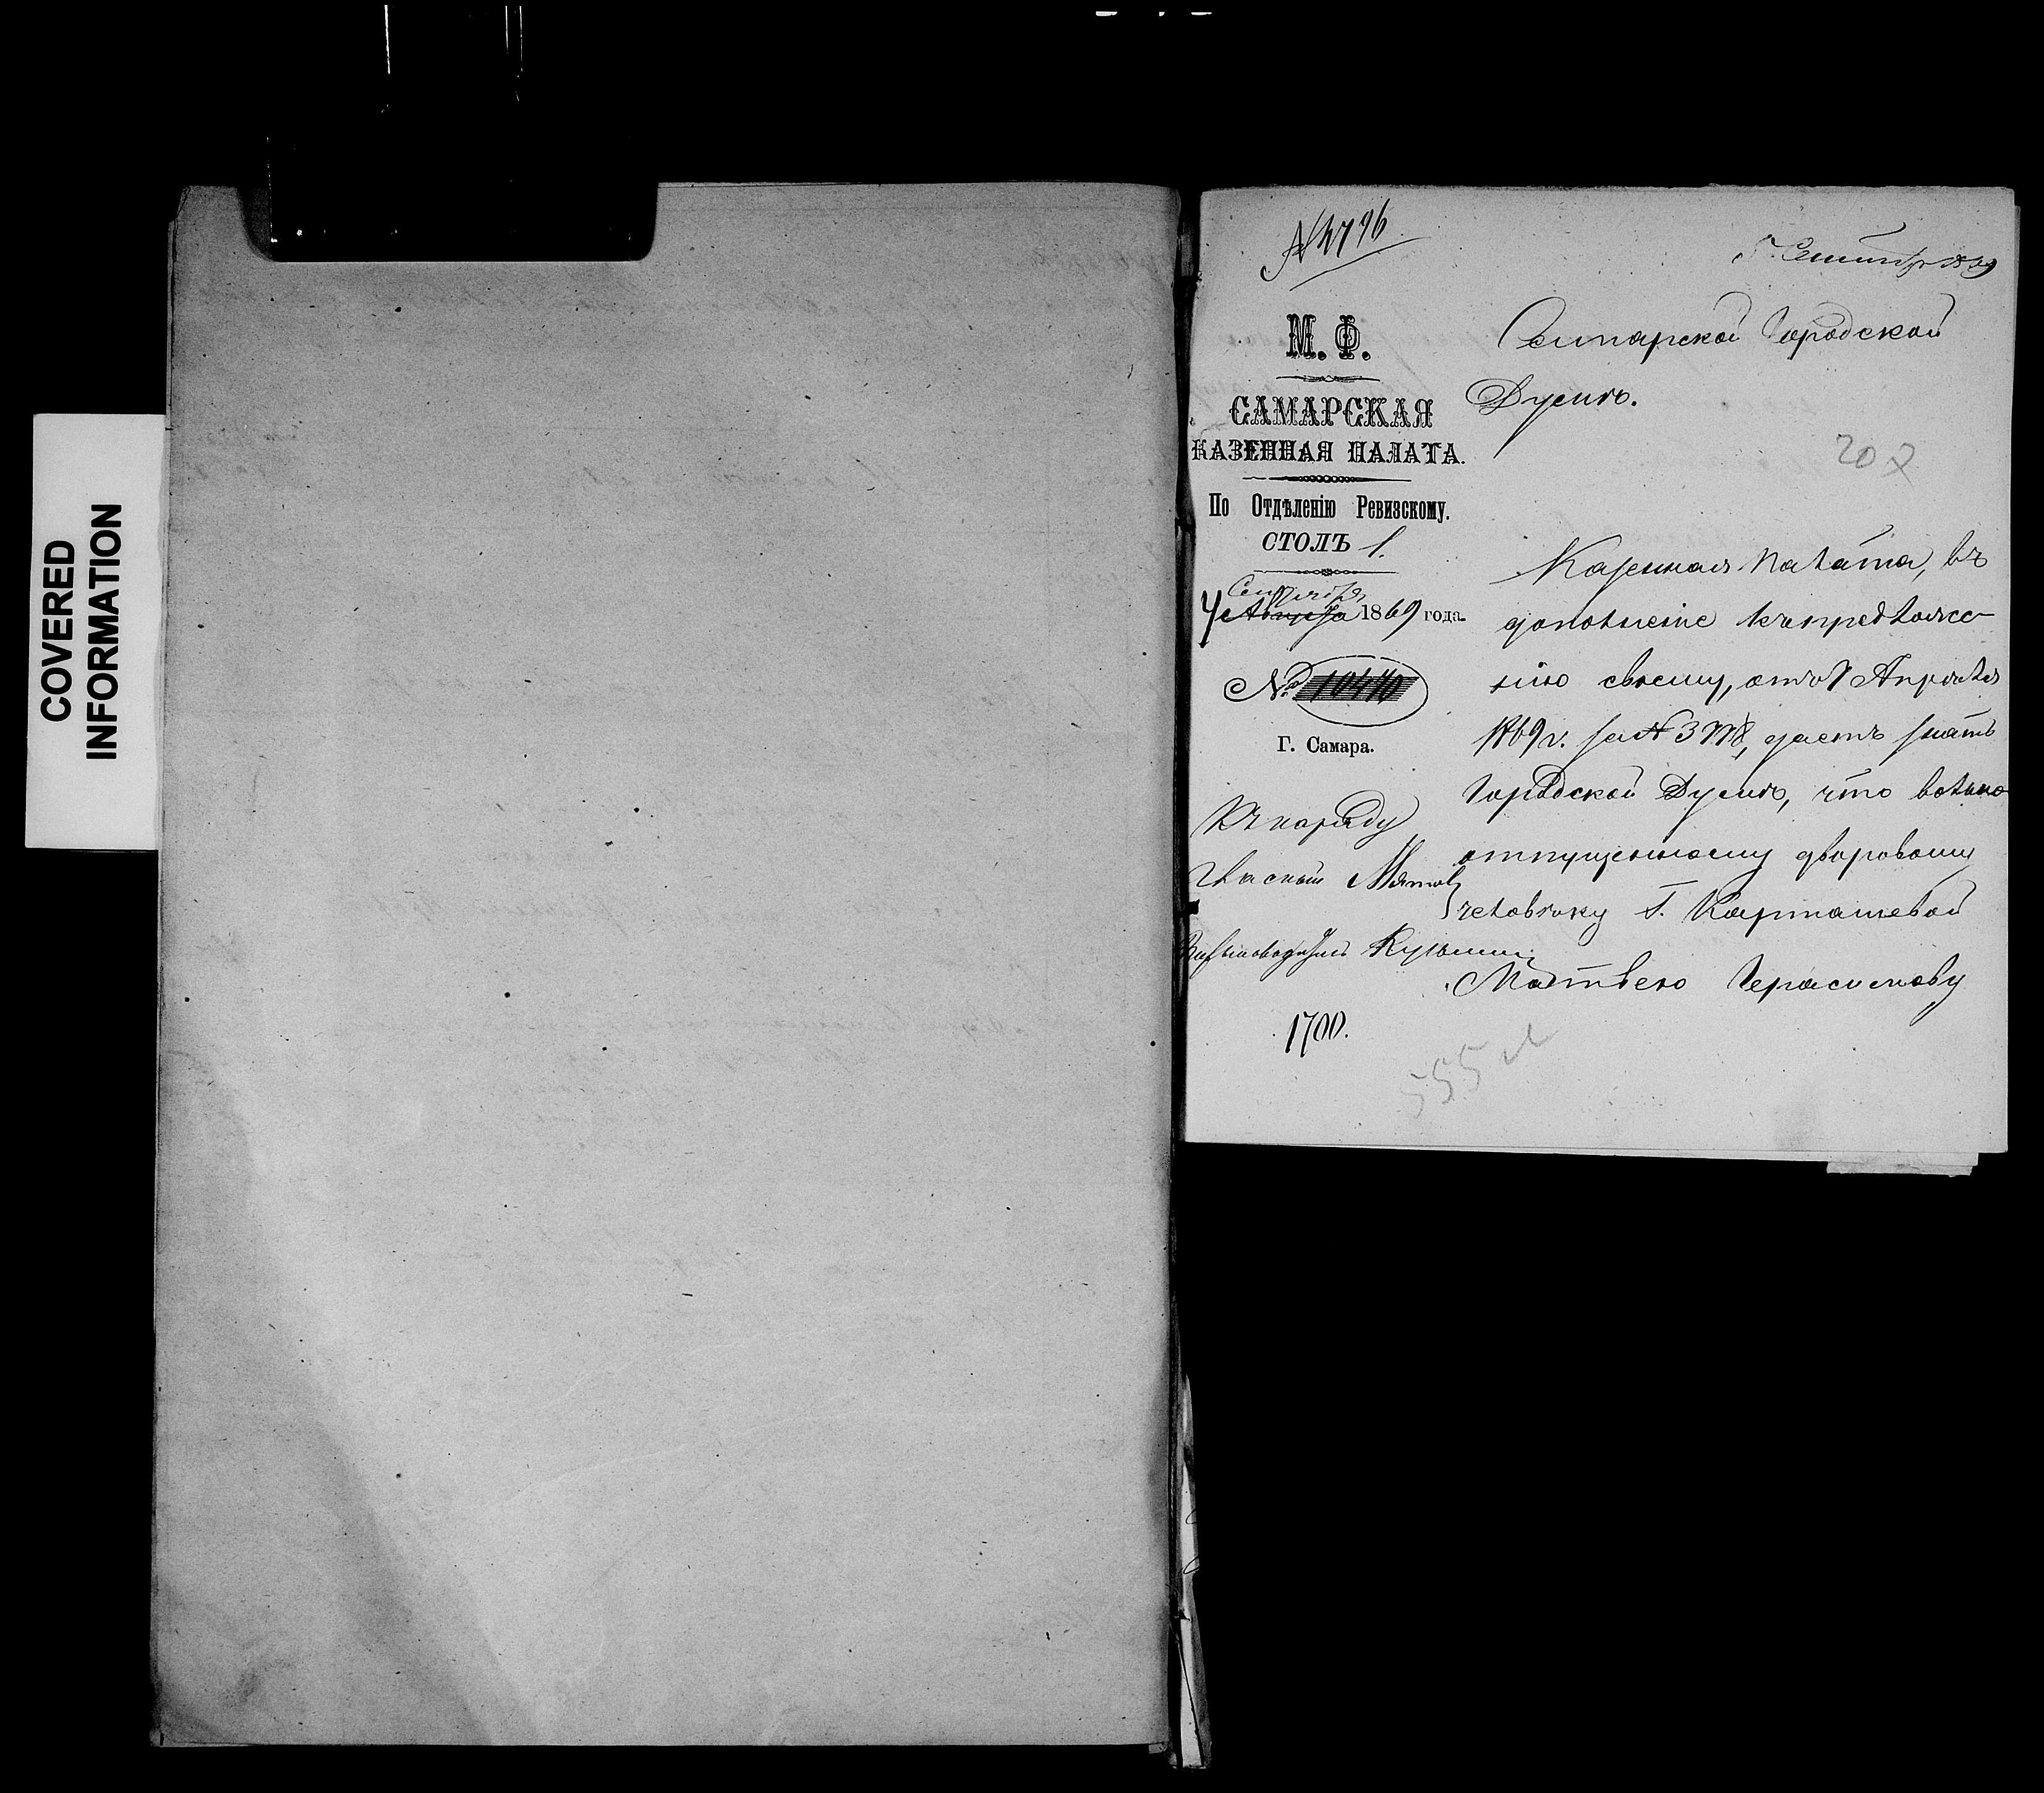 COVERED
INFORMATION
№ 4796
5. Сентября 1869
М. Ф.
САМАРСКАЯ
КАЗЕННАЯ ПАЛАТА.
По Отдѣленію Ревизскому.
СТОЛЪ 1.
Сентября
4 Августа 1869 года.
№ 10440
Г. Самара.
Къ наряду
Гласный
Кузьмин
1700.
Самарской Городской
Думѣ.
207
Казенная Палата, въ
дополненіе къ предложе-
нію своему, отъ 7 Апрѣля
1869 г. за № 3778, даетъ знать
Городской Думѣ, что вольно
отпущенному дворовому
человѣку Г. Карташевой
Матвею Герасимову
555